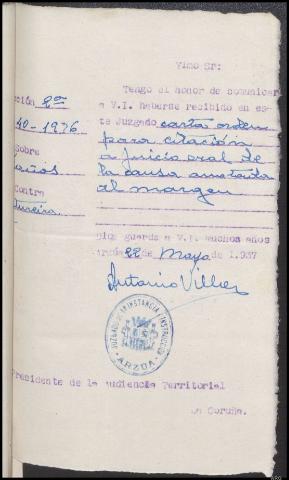 Ylmo Sr:
Tengo el honor de comunicar
ción 2ª
a V.I. haberse recibido en es-
te Juzgado carta orden
40-1936
para citación
Sobre
a juicio oral de
años
la causa anotada
Contra
al margen
Dios guarde a V.I. muchos años
22 de Mayo de 1.937
Antonio Villar
JUZGADO DE 1ª INSTANCIA E INSTRUCCION
ARZUA
residente de la Audiencia Territorial
La Coruña.